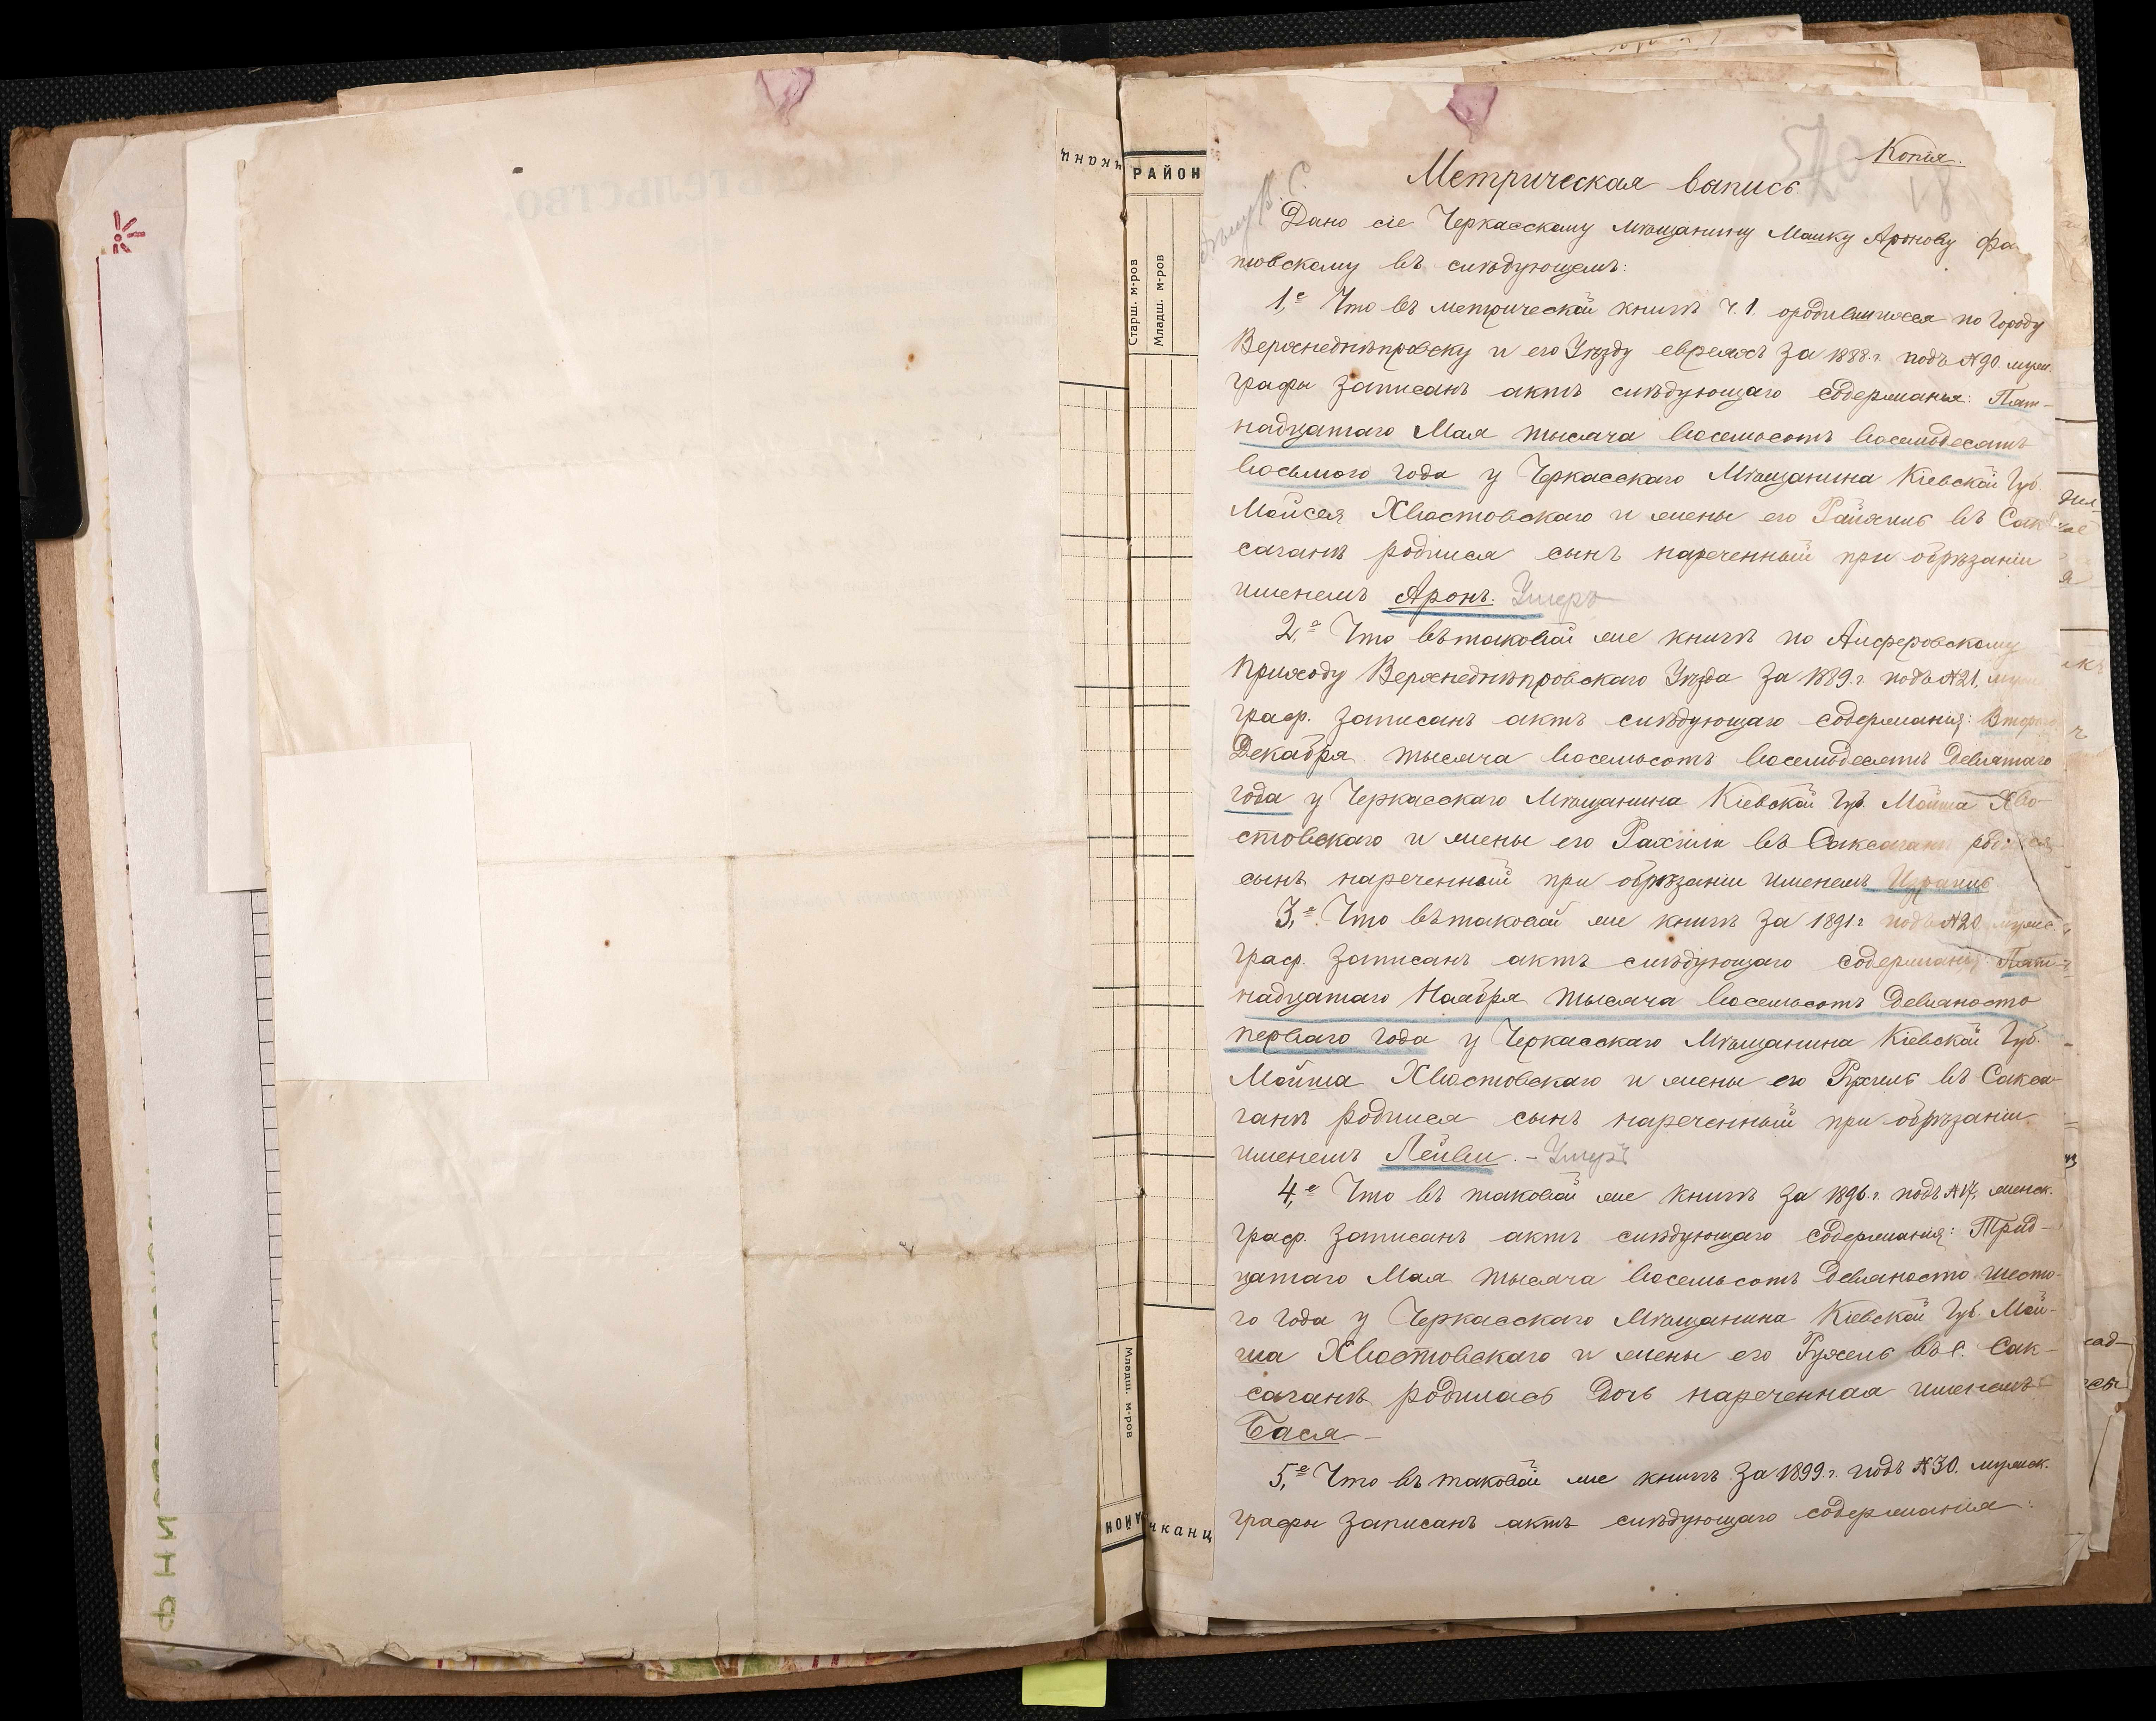 Копія.
Метрическая выпись
Дано сіе Черкасскому мѣщанину Мошку Аронову
въ слѣдующемъ:
1,е Что въ метрической книгѣ ч. 1. ородившихся по городу
Верхнеднѣпровску и его Уѣзду евреяхъ за 1888. г. подъ №90. муж.
графы записанъ актъ слѣдующаго содержанья: Пят-
надцатаго Мая тысяча восемьсотъ восемьдесятъ
восьмого года у Черкасскаго Мѣщанина Кіевской Губ.
Мойсея Хвостовскаго и жены его въ Сак
саганѣ родился сынъ нареченный при обрѣзаніи
именемъ Аронъ. Умеръ
2,е Что въ таковой же книгѣ по Алферовскому
приходу Верхнеднѣпровскаго Уѣзда за 1889. г. подъ №21. муж
граф. записанъ актъ слѣдующаго содержанія: Второго
Декабря тысяча восемьсотъ восемьдесятъ девятаго
года у Черкасскаго Мѣщанина Кіевской Губ. Мойша Хво-
стовскаго и жены его Рахили въ Саксаганѣ родился
сынъ нареченный при обрѣзаніи именемъ Израиль
3,е Что въ таковой же книгѣ за 1891 г подъ №20 мужс.
граф. записанъ актъ слѣдующаго содержанія Пят-
надцатаго Ноября тысяча восемьсотъ девяносто
перваго года у Черкасскаго Мѣщанина Кіевской Губ.
Мойша Хвостовскаго и жены его Рухель въ Сакса-
ганѣ родился сынъ нареченный при обрѣзаніи
именемъ Лейви. - Умеръ
4,е Что въ таковой же книгѣ за 1896. г. подъ №17, женск.
граф. записанъ актъ слѣдующаго содержанія: Трид-
цатаго Мая тысяча восемьсотъ девяносто шесто-
го года у Черкасскаго Мѣщанина Кіевской Губ. Мой-
ша Хвостовскаго и жены его Рухель въ с. Сак-
саганѣ родилась дочь нареченная именемъ
Бася -
5,е Что въ таковой же книгѣ за 1899. г. подъ №30. мужск.
графы записанъ актъ слѣдующаго содержанія:
РАЙОН
Старш. м-ров
Младш. м-ров
Младш. м-ров
РАЙОН